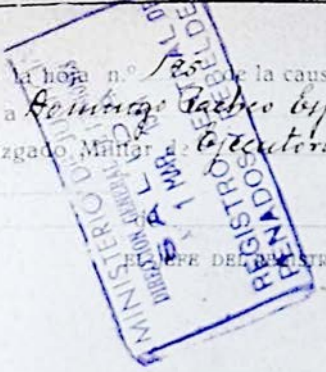 la hoja n.º 125 de la caus
a Domingo Pacheco Esp
zgado Militar de Ejecutori
EL JEFE DEL REGISTR
MINISTERIO DE JU
DIRECCION GENERAL
SALIDA
1 MAR.
REGISTRO CENTRAL DE
PENADOS Y REBELDE